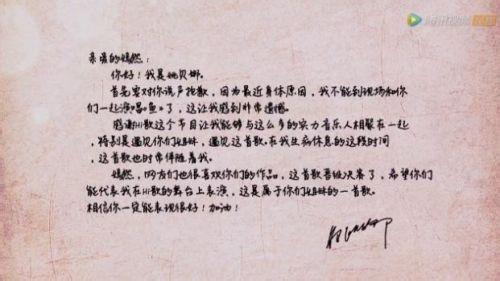 腾讯视频
亲爱的嫣然：
你好！我是姚贝娜。
首先要对你说声抱歉，因为最近身体原因，我不能到现场和你
们一起演唱《鱼》了，这让我感到非常遗憾。
感谢Hi歌这个节目让我能够与这么多的实力音乐人相聚在一起
，特别是遇见你们姐妹，遇见这首歌。在我生病休息的这段时间
，这首歌也时常伴随着我。
嫣然，网友们也很喜欢你们的作品，这首歌晋级决赛了，希望你们
能代表我在Hi歌的舞台上表演，这是属于你们姐妹的一首歌。
相信你一定能表现很好！加油！